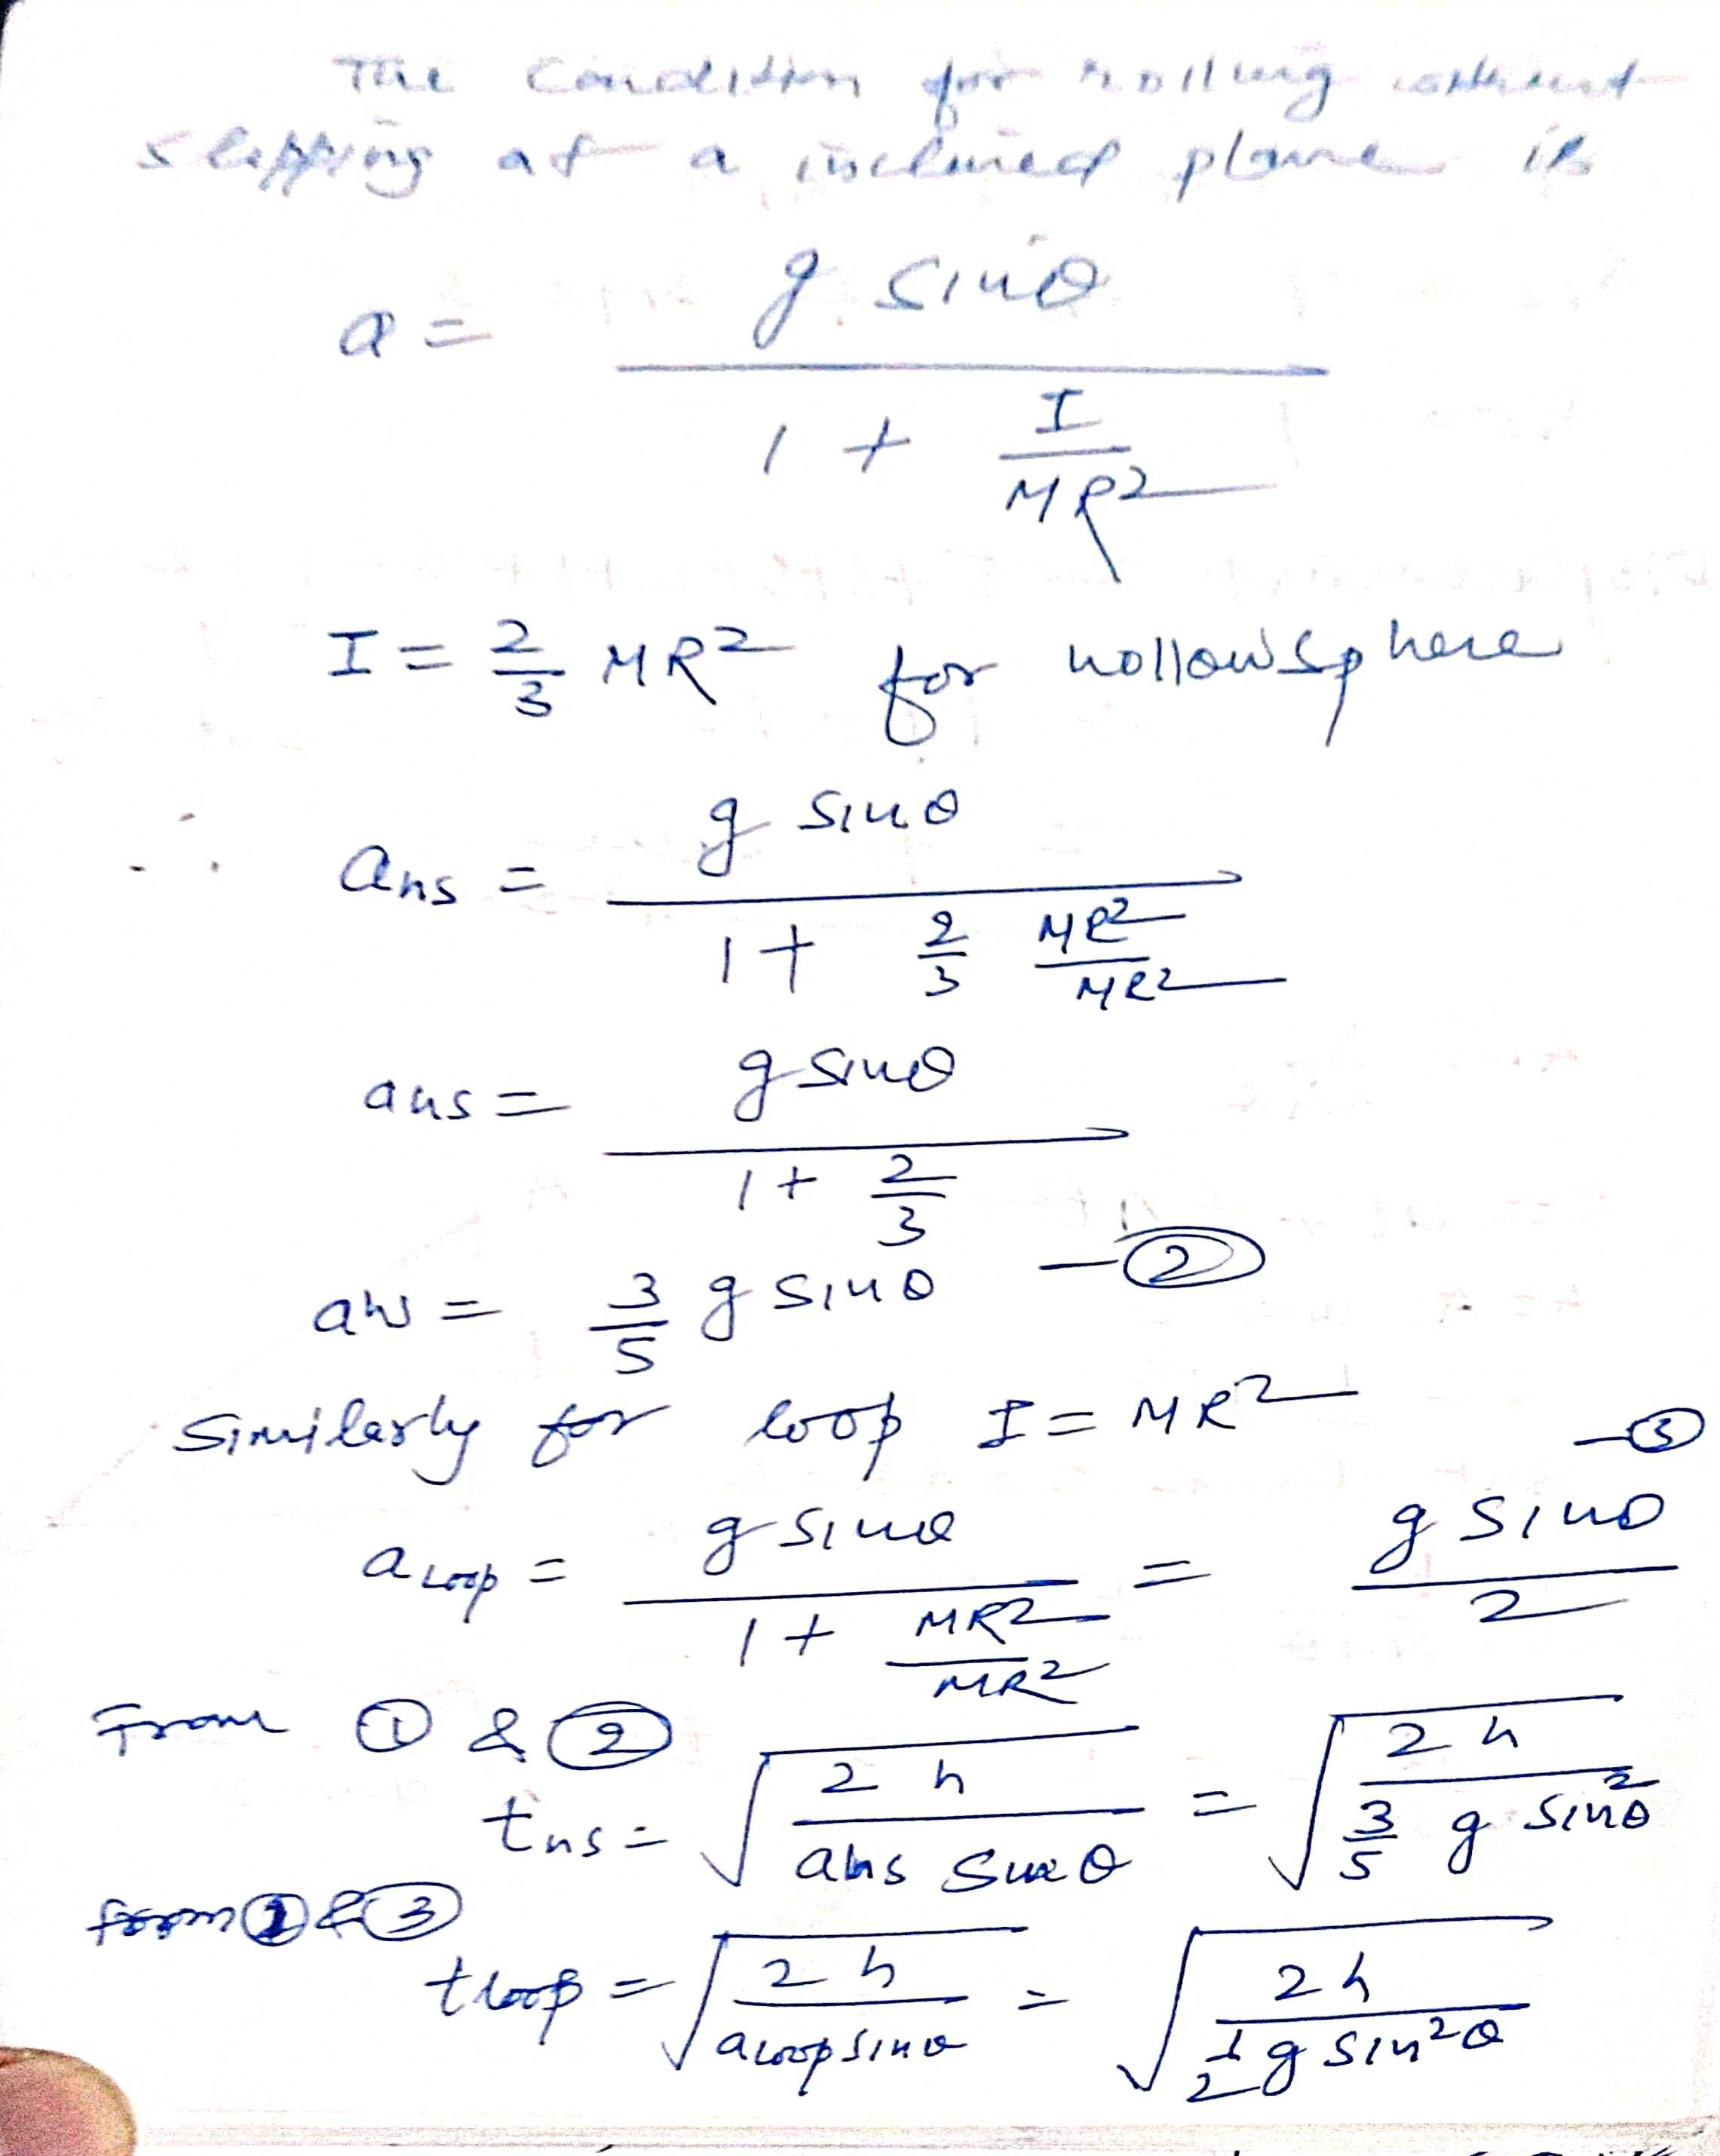 The condition for rolling without
slipping at a inclined plane is
a = g sinθ / (1 + I/MR²)
I = 2/3 MR² for hollow sphere
∴ ahs = g sinθ / (1 + 2/3 MR²/MR²)
ahs = g sinθ / (1 + 2/3)
ahs = 3/5 g sinθ — ②
Similarly for loop I = MR² — ③
a loop = g sinθ / (1 + MR²/MR²) = g sinθ / 2
From ① & ②
ths = √(2h / ahs sinθ) = √(2h / 3/5 g sin²θ)
from ① & ③
t loop = √(2h / a loop sinθ) = √(2h / 1/2 g sin²θ)